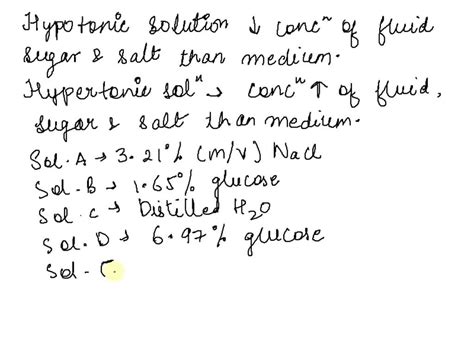 Hypotonic solution ↓ concⁿ of fluid
sugar & salt than medium.
Hypertonic solⁿ → concⁿ ↑ of fluid,
sugar & salt than medium.
Sol. A → 3.21% (m/v) Nacl
Sol. B → 1.65% glucose
Sol. C → Distilled H₂O
Sol. D → 6.97% glucose
Sol -